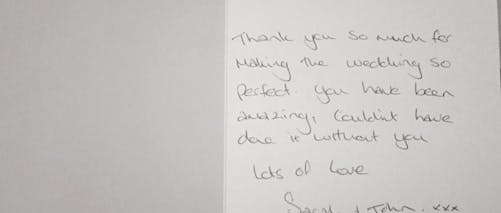 Thank you so much for
Making the wedding so
perfect. you have been
amazing, Couldn't have
done it without you
Lots of Love
Sarah + John. xxx